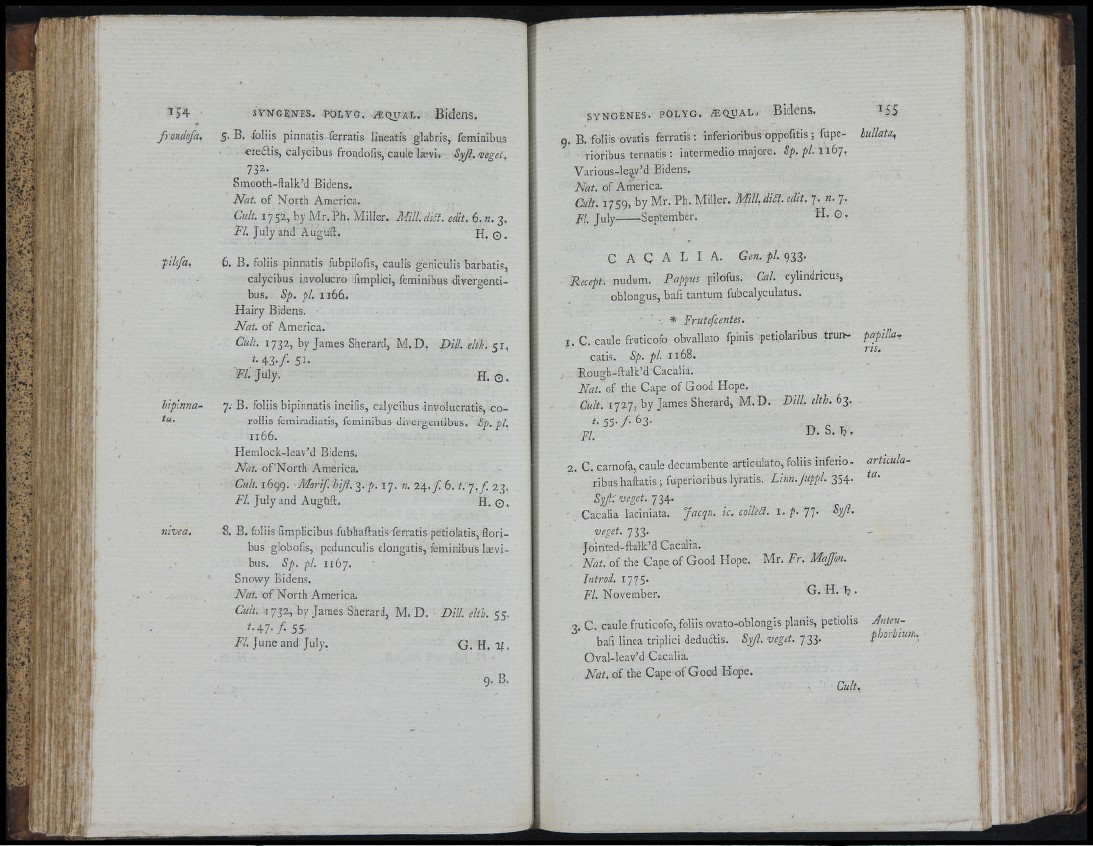 154 SYNGENES. POLYG. ÆQUAL. Bidens.
frondosa. 5. B. foliis pinnatis ſerratis lineatis glabris, ſeminibus
erectis, calycibus frondoſis, caule lævi. Syſt. veget.
732.
Smooth-ſtalk'd Bidens.
Nat. of North America.
Cult. 1752, by Mr. Ph. Miller. Mill. dict. edit. 6. n. 3.
Fl. July and Auguſt. H. ☉.
piloſa. 6. B. foliis pinnatis ſubpiloſis, caulis geniculis barbatis,
calycibus involucro ſimplici, ſeminibus divergenti-
bus. Sp. pl. 1166.
Hairy Bidens.
Nat. of America.
Cult. 1732, by James Sherard, M. D. Dill. elth. 51.
t. 43. f. 51.
Fl. July. H. ☉.
bipinna- 7. B. foliis bipinnatis inciſis, calycibus involucratis, co-
ta. rollis ſemiradiatis, ſeminibus divergentibus. Sp. pl.
1166.
Hemlock-leav'd Bidens.
Nat. of North America.
Cult. 1699. Moriſ. hiſt. 3. p. 17. n. 24. ſ. 6. t. 7. f. 23.
Fl. July and Auguſt. H. ☉.
nivea. 8. B. foliis ſimplicibus ſubhaſtatis ſerratis petiolatis, flori-
bus globoſis, pedunculis elongatis, ſeminibus lævi-
bus. Sp. pl. 1167.
Snowy Bidens.
Nat. of North America.
Cult. 1732, by James Sherard, M. D. Dill. elth. 55.
t. 47. f. 55.
Fl. June and July. G. H. ♃.
9. B.
SYNGENES. POLYG. ÆQUAL. Bidens. 155
9. B. foliis ovatis ſerratis: inferioribus oppoſitis; ſupe- bullata.
rioribus ternatis: intermedio majore. Sp. pl. 1167.
Various-leav'd Bidens.
Nat. of America.
Cult. 1759, by Mr. Ph. Miller. Mill. dict. edit. 7. n. 7.
Fl. July——September. H. ☉.
CAÇALIA. Gen. pl. 933.
Recept. nudum. Pappus piloſus. Cal. cylindricus,
oblongus, baſi tantum ſubcalyculatus.
* Fruteſcentes.
1. C. caule fruticoſo obvallato ſpinis petiolaribus trun- papilla-
catis. Sp. pl. 1168. ris.
Rough-ſtalk'd Cacalia.
Nat. of the Cape of Good Hope.
Cult. 1727, by James Sherard, M. D. Dill. elth. 63.
t. 55. f. 63.
Fl. D. S. ♄.
2. C. carnoſa, caule decumbente articulato, foliis inferio- articula-
ribus haſtatis; ſuperioribus lyratis. Linn. ſuppl. 354. ta.
Syſt. veget. 734.
Cacalia laciniata. Jacqu. ic. collect. 1. p. 77. Syſt.
veget. 733.
Jointed-ſtalk'd Cacalia.
Nat. of the Cape of Good Hope. Mr. Fr. Maſſon.
Introd. 1775.
Fl. November. G. H. ♄.
3. C. caule fruticoſo, foliis ovato-oblongis planis, petiolis Anteu-
baſi linea triplici deductis. Syſt. veget. 733. phorbium.
Oval-leav'd Cacalia.
Nat. of the Cape of Good Hope.
Cult.